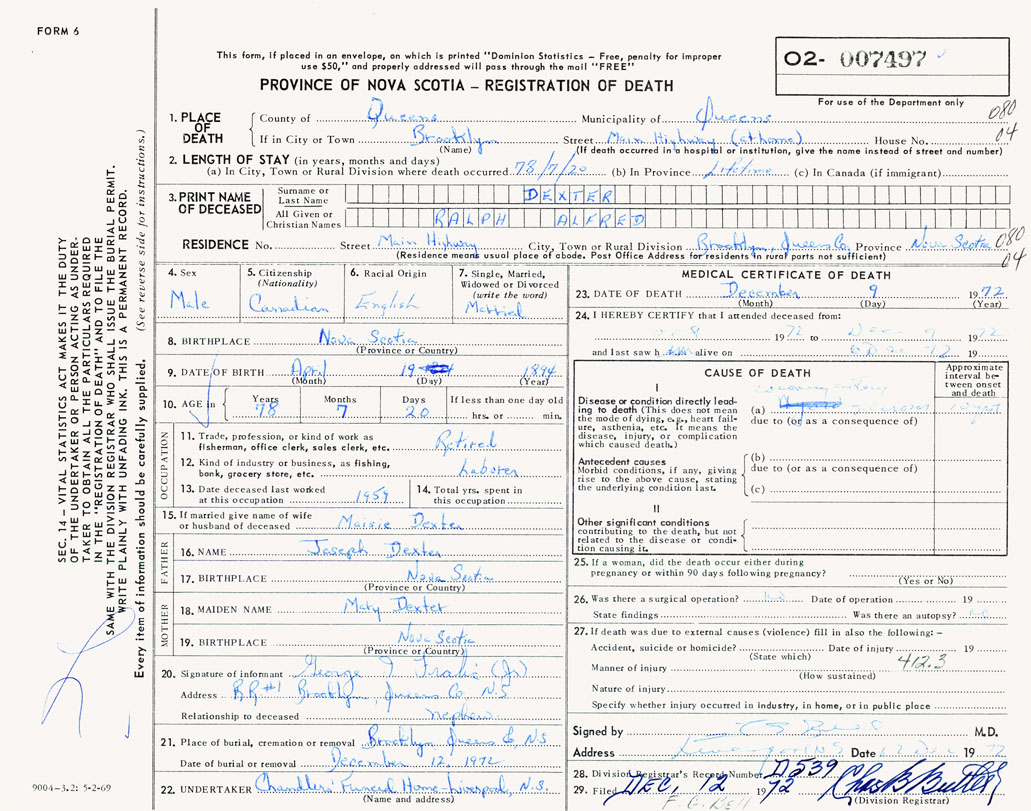 FORM 6
This form, if placed in an envelope, on which is printed "Dominion Statistics – Free, penalty for improper
use $50," and properly addressed will pass through the mail "FREE"
O2- 007497
PROVINCE OF NOVA SCOTIA – REGISTRATION OF DEATH
For use of the Department only
080
04
1. PLACE OF DEATH
County of Queens Municipality of Queens
If in City or Town Brooklyn Street Main Highway (at home) House No.
(Name) (If death occurred in a hospital or institution, give the name instead of street and number)
2. LENGTH OF STAY (in years, months and days)
(a) In City, Town or Rural Division where death occurred 78/7/20 (b) In Province Lifetime (c) In Canada (if immigrant)
3. PRINT NAME OF DECEASED
Surname or Last Name DEXTER
All Given or Christian Names RALPH ALFRED
RESIDENCE No. Street Main Highway City, Town or Rural Division Brooklyn, Queens Co. Province Nova Scotia
080
04
(Residence means usual place of abode. Post Office Address for residents in rural parts not sufficient)
4. Sex
Male
5. Citizenship
(Nationality)
Canadian
6. Racial Origin
English
7. Single, Married,
Widowed or Divorced
(write the word)
Married
8. BIRTHPLACE Nova Scotia
(Province or Country)
9. DATE OF BIRTH April 19 1894
(Month) (Day) (Year)
10. AGE in
Years Months Days If less than one day old
78 7 20 hrs. or min.
OCCUPATION
11. Trade, profession, or kind of work as
fisherman, office clerk, sales clerk, etc. Retired
12. Kind of industry or business, as fishing,
bank, grocery store, etc. Laborer
13. Date deceased last worked
at this occupation 1959
14. Total yrs. spent in
this occupation
15. If married give name of wife
or husband of deceased Maisie Dexter
FATHER
16. NAME Joseph Dexter
17. BIRTHPLACE Nova Scotia
(Province or Country)
MOTHER
18. MAIDEN NAME Mary Dexter
19. BIRTHPLACE Nova Scotia
(Province or Country)
20. Signature of informant George T (Jr)
Address RR#1 Brooklyn, Queens Co, N.S.
Relationship to deceased nephew
21. Place of burial, cremation or removal Brooklyn, Queens Co, N.S.
Date of burial or removal December 12, 1972
22. UNDERTAKER Chandlers Funeral Home-Liverpool, N.S.
(Name and address)
MEDICAL CERTIFICATE OF DEATH
23. DATE OF DEATH December 9 1972
(Month) (Day) (Year)
24. I HEREBY CERTIFY that I attended deceased from:
1972 to Dec 9 1972
and last saw h alive on 19
CAUSE OF DEATH
Approximate
interval be-
tween onset
and death
I
Disease or condition directly lead-
ing to death (This does not mean
the mode of dying, e.g., heart fail-
ure, asthenia, etc. It means the
disease, injury, or complication
which caused death.)
(a)
due to (or as a consequence of)
Antecedent causes
Morbid conditions, if any, giving
rise to the above cause, stating
the underlying condition last.
(b)
due to (or as a consequence of)
(c)
II
Other significant conditions
contributing to the death, but not
related to the disease or condi-
tion causing it.
25. If a woman, did the death occur either during
pregnancy or within 90 days following pregnancy?
(Yes or No)
26. Was there a surgical operation? No Date of operation 19
State findings Was there an autopsy? No
27. If death was due to external causes (violence) fill in also the following: –
Accident, suicide or homicide? Date of injury 19
(State which)
412.3
Manner of injury
(How sustained)
Nature of injury
Specify whether injury occurred in industry, in home, or in public place
Signed by M.D.
Address Date 1972
28. Division Registrar's Record Number D539
29. Filed DEC, 12 1972 Chas B Butler
(Division Registrar)
SEC. 14 – VITAL STATISTICS ACT MAKES IT THE DUTY
OF THE UNDERTAKER OR PERSON ACTING AS UNDER-
TAKER TO OBTAIN ALL THE PARTICULARS REQUIRED
IN THE "REGISTRATION OF DEATH" AND TO FILE THE
SAME WITH THE DIVISION REGISTRAR WHO SHALL ISSUE THE BURIAL PERMIT.
WRITE PLAINLY WITH UNFADING INK. THIS IS A PERMANENT RECORD.
Every item of information should be carefully supplied. (See reverse side for instructions.)
9004-3.2: 5-2-69